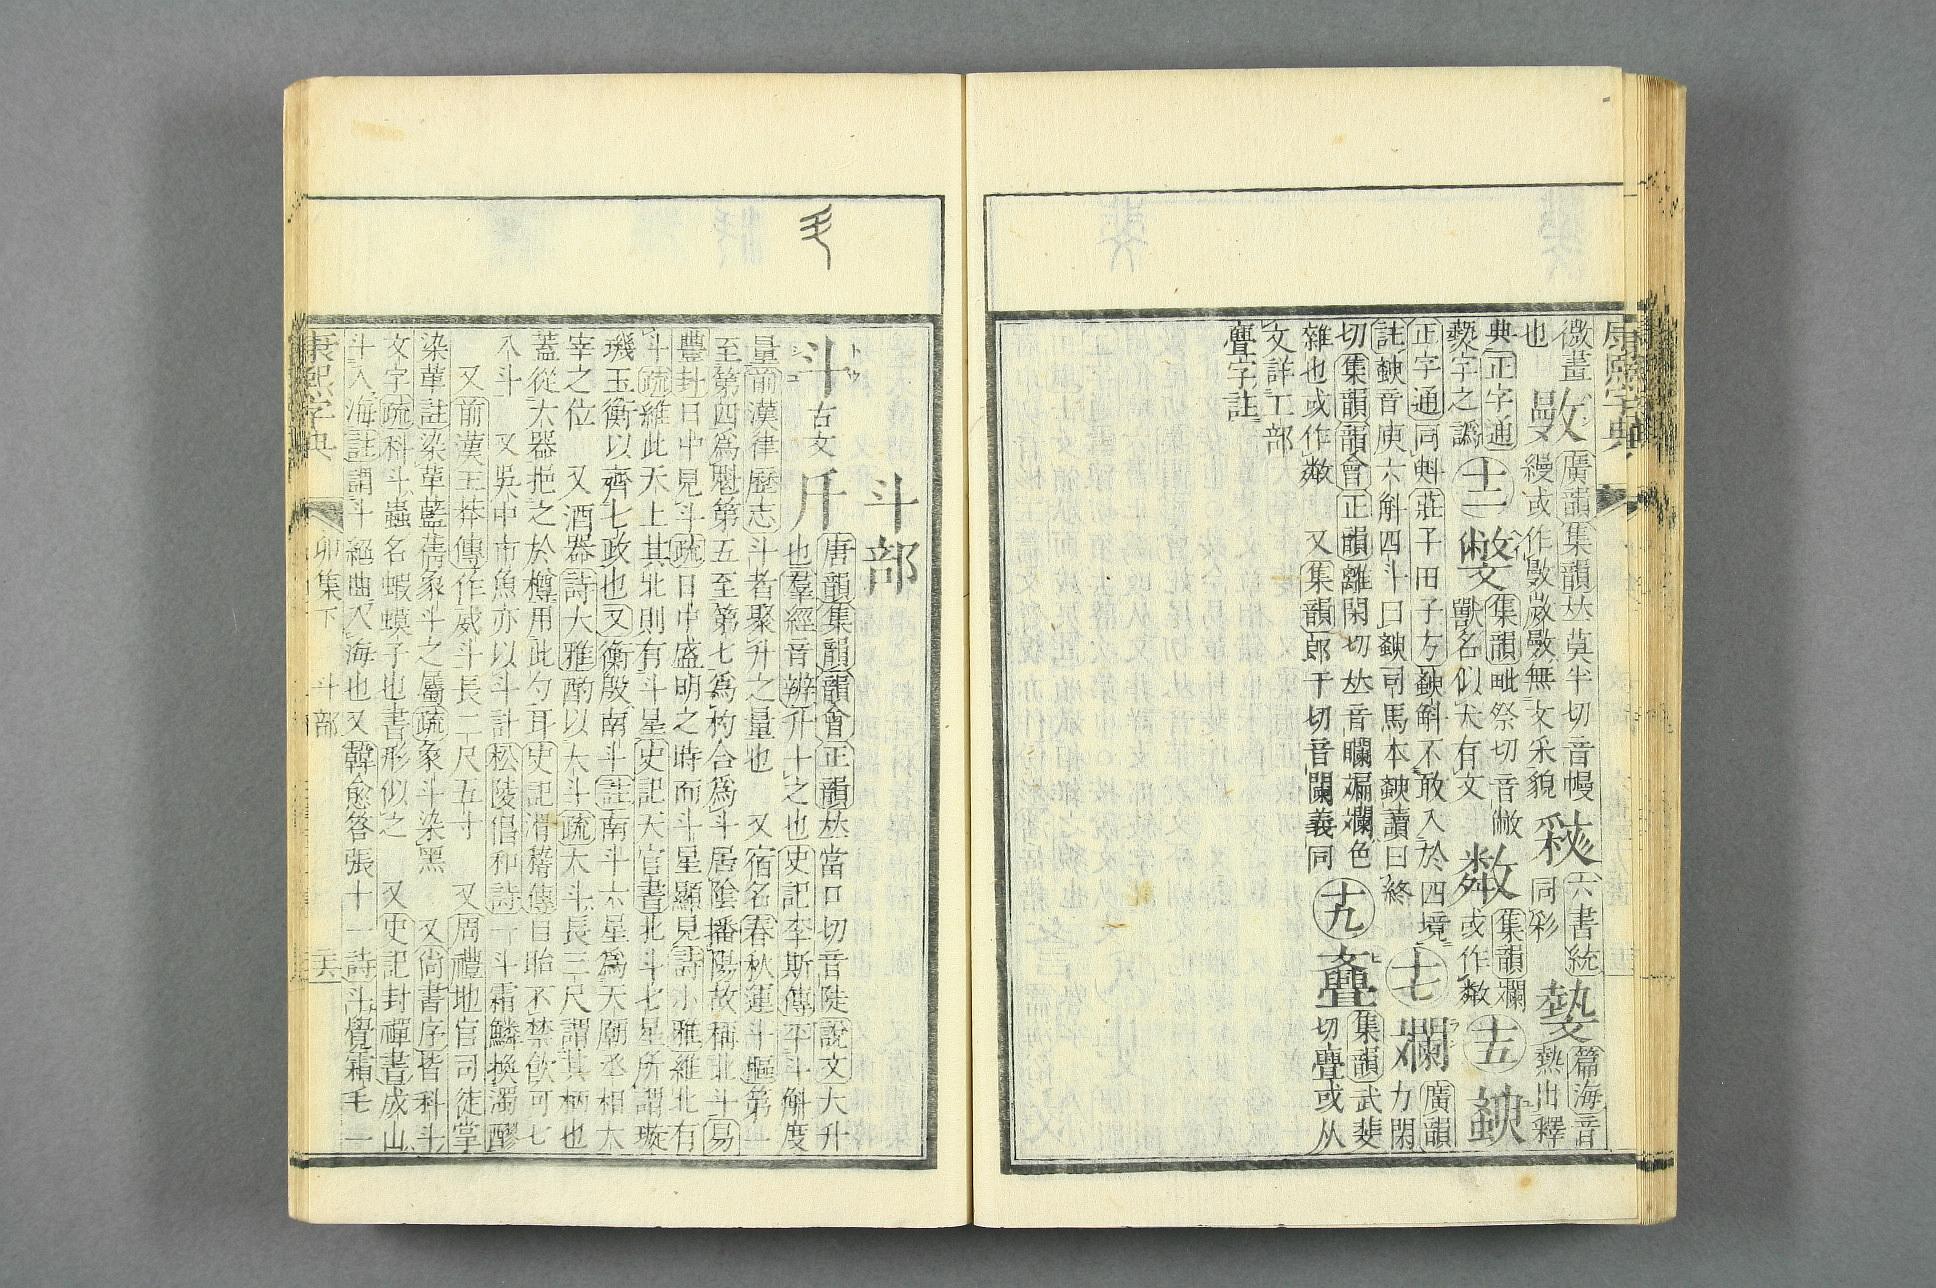 康熙字典
微畫
也
廣韻集韻𠀤莫半切音幔
縵或作無文采貌
六書統
同彩
篇海音
熱出釋
典正字通
字之譌
十二
集韻毗祭切音敝
獸名似犬有文
集韻斕
或作
十五
正字通同蚪莊子田子方斔斛不敢入於四境
註斔音庾六斛四斗曰斔司馬本斔讀曰終
十七
斕
廣韻
力閑
切集韻韻會正韻離閑切𠀤音斕斒斕色
雜也或作 又集韻郎干切音闌義同
十九
集韻武斐
切亹或从
文詳工部
亹字註
斗部
斗
トウ
古文
唐韻集韻韻會正韻𠀤當口切音陡說文大升
也羣經音辨升十之也史記李斯傳平斗斛度
量前漢律歷志斗者聚升之量也 又宿名春秋運斗樞第一
至第四爲魁第五至第七爲杓合爲斗居陰播陽故稱北斗易
豐封日中見斗疏日中盛明之時而斗星顯見詩小雅維北有
斗疏維此天上其北則有斗星史記天官書北斗七星所謂璇
璣玉衡以齊七政也又衡殷南斗註南斗六星爲天廟丞相大
宰之位 又酒器詩大雅酌以大斗疏大斗長三尺謂其柄也
蓋從大器挹之於樽用此勺耳史記滑稽傳目眙不禁飮可七
八斗 又吳中市魚亦以斗計松陵倡和詩一斗霜鱗換濁醪
又前漢王莽傳作威斗長二尺五寸 又周禮地官司徒掌
染草註染草藍蒨象斗之屬疏象斗染黑 又尚書序皆科斗
文字疏科斗蟲名蝦蟆子也書形似之 又史記封禪書成山
斗入海註謂斗絕曲入海也又韓愈荅張十一詩斗覺霜毛一
康熙字典 卯集下 斗部